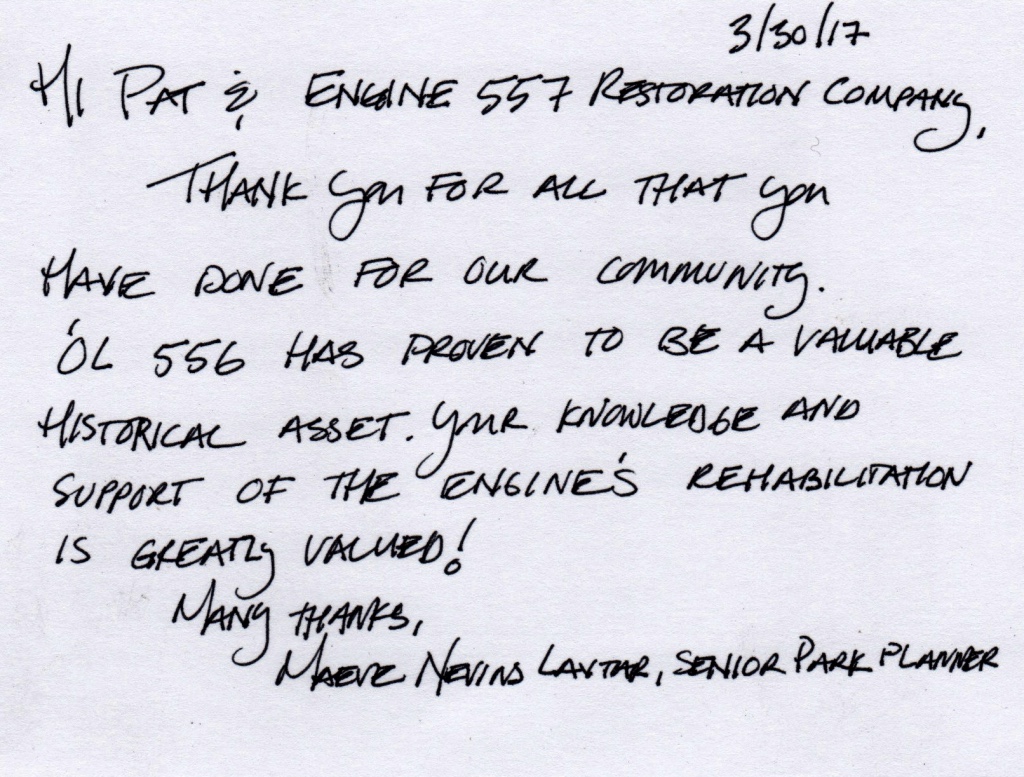 3/30/17
Hi Pat & Engine 557 Restoration Company,
Thank you for all that you
have done for our community.
'Ol 556 has proven to be a valuable
historical asset. Your knowledge and
support of the engine's rehabilitation
is greatly valued!
Many thanks,
Maeve Nevins Lavtar, Senior Park Planner